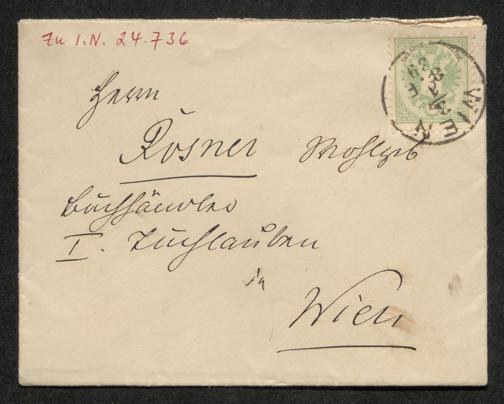 Zu I.N. 24.736
WIEN
Herrn
Rosner Wohlgb
Buchhändler
I. Tuchlauben
in
Wien